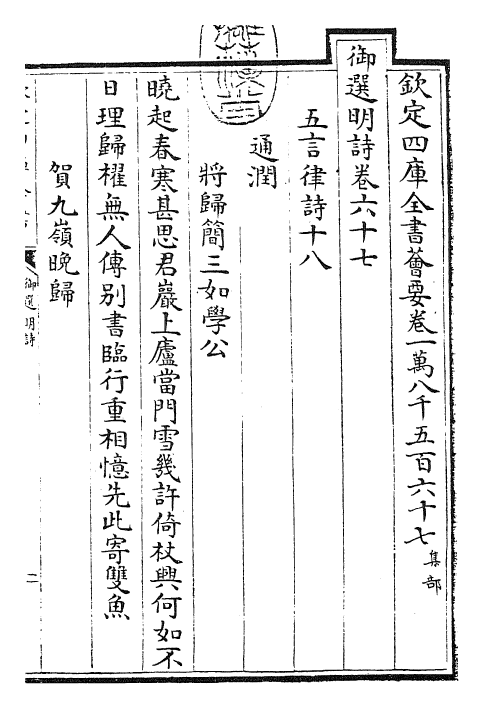 欽定四庫全書薈要卷一萬八千五百六十七 集部
御選明詩卷六十七
五言律詩十八
通潤
將歸簡三如學公
曉起春寒甚思君巖上廬當門雪幾許倚杖興何如不
日理歸櫂無人傳別書臨行重相憶先此寄雙魚
賀九嶺晚歸
御選明詩